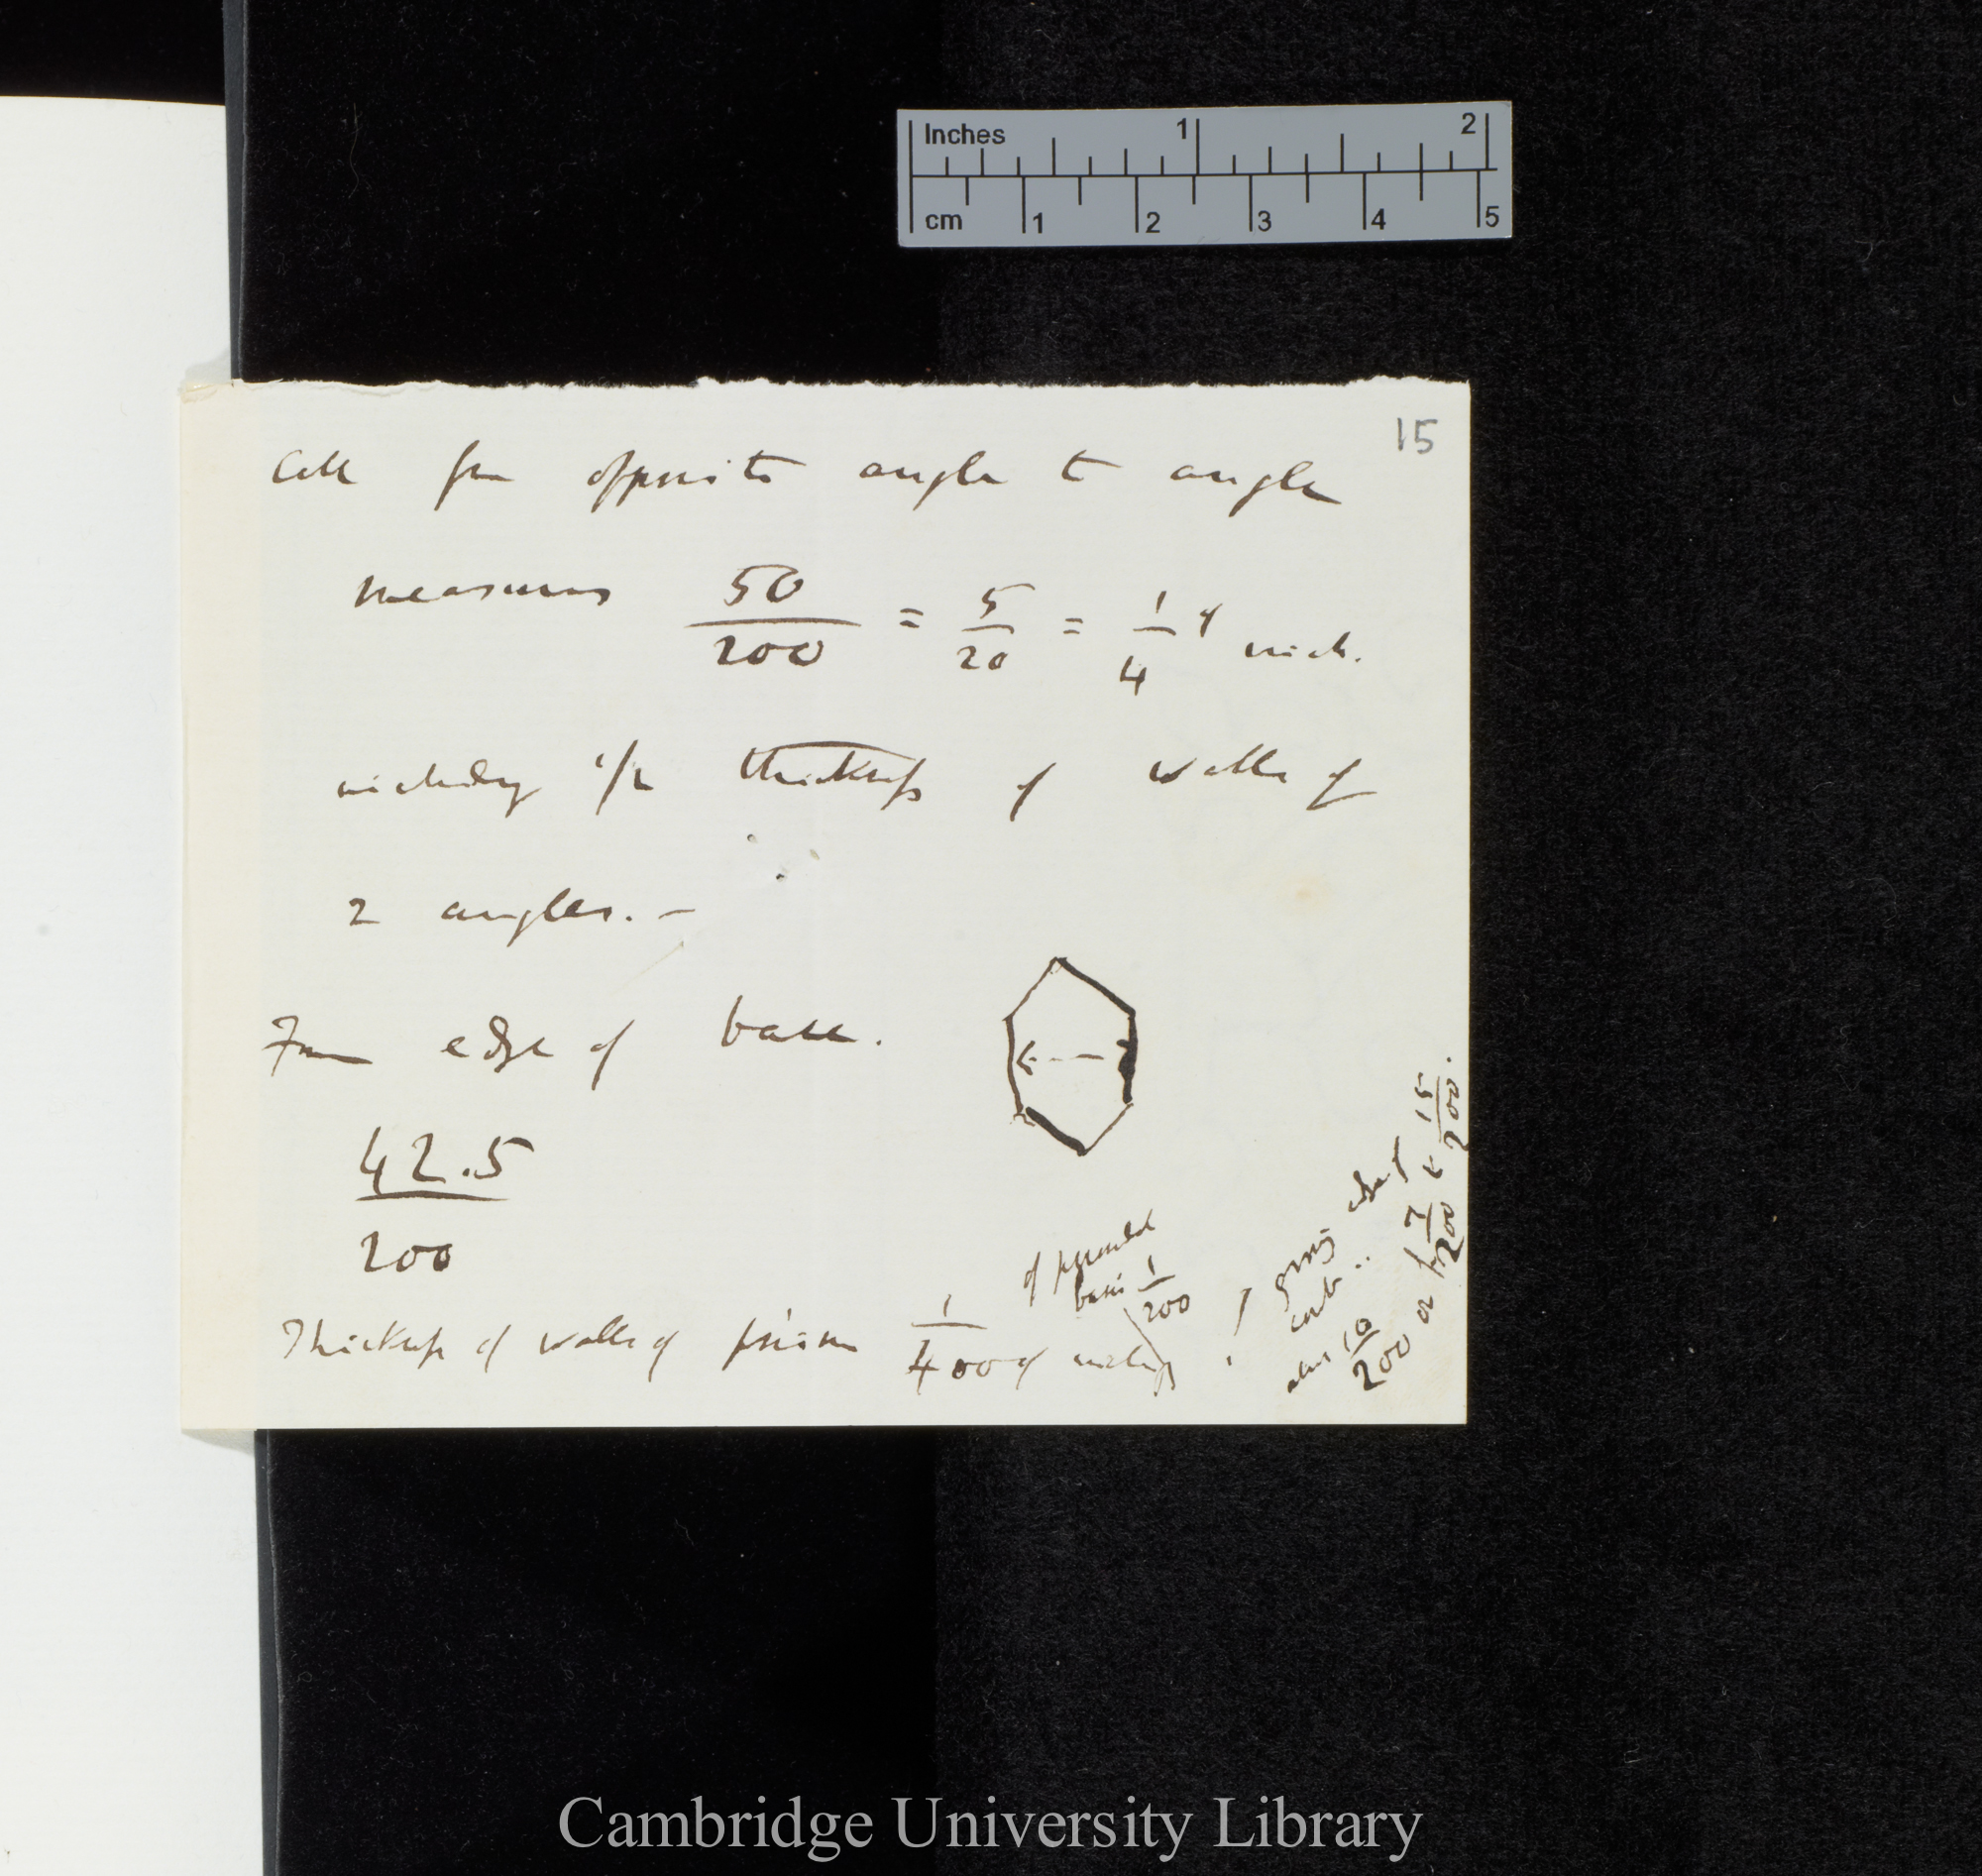 Inches 1 2
cm 1 2 3 4 5
15
Cell from opposite angle to angle
measures 50/200 = 5/20 = 1/4 of inch.
including 1/2 thickness of walls of
2 angles. –
From edge of base.
42.5
200
Thickness of walls of prism 1/400 of inch
of pyramidal
basis 1/200
growing edge of
comb
about 10/200 or from 7/200 to 15/200.
Cambridge University Library